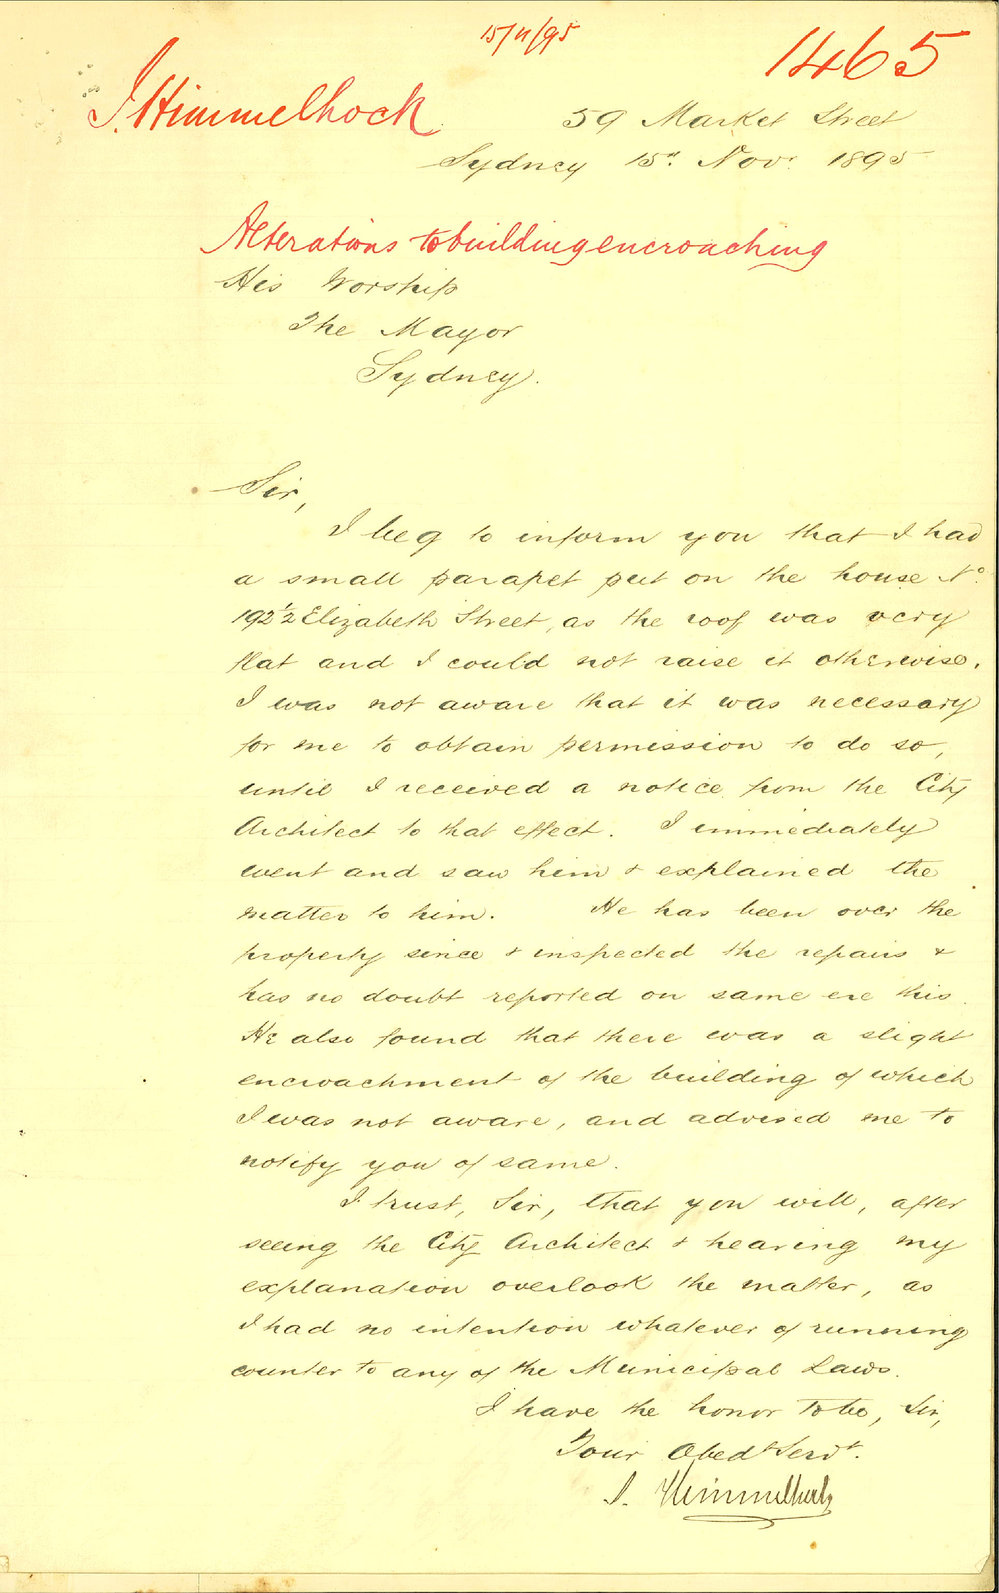 15/11/95
1465
J. Himmelhock
59 Market Street
Sydney 15th Novr 1895
Alterations to building encroaching
His Worship
The Mayor
Sydney.
Sir,
I beg to inform you that I had
a small parapet put on the house No.
192 1/2 Elizabeth Street, as the roof was very
flat and I could not raise it otherwise.
I was not aware that it was necessary
for me to obtain permission to do so,
until I received a notice from the City
Architect to that effect. I immediately
went and saw him & explained the
matter to him. He has been over the
property since & inspected the repairs &
has no doubt reported on same ere this.
He also found that there was a slight
encroachment of the building of which
I was not aware, and advised me to
notify you of same.
I trust, Sir, that you will, after
seeing the City Architect & hearing my
explanation overlook the matter, as
I had no intention whatever of running
counter to any of the Municipal Laws.
I have the honor to be, Sir,
Your Obedt Servt.
J. Himmelhoch